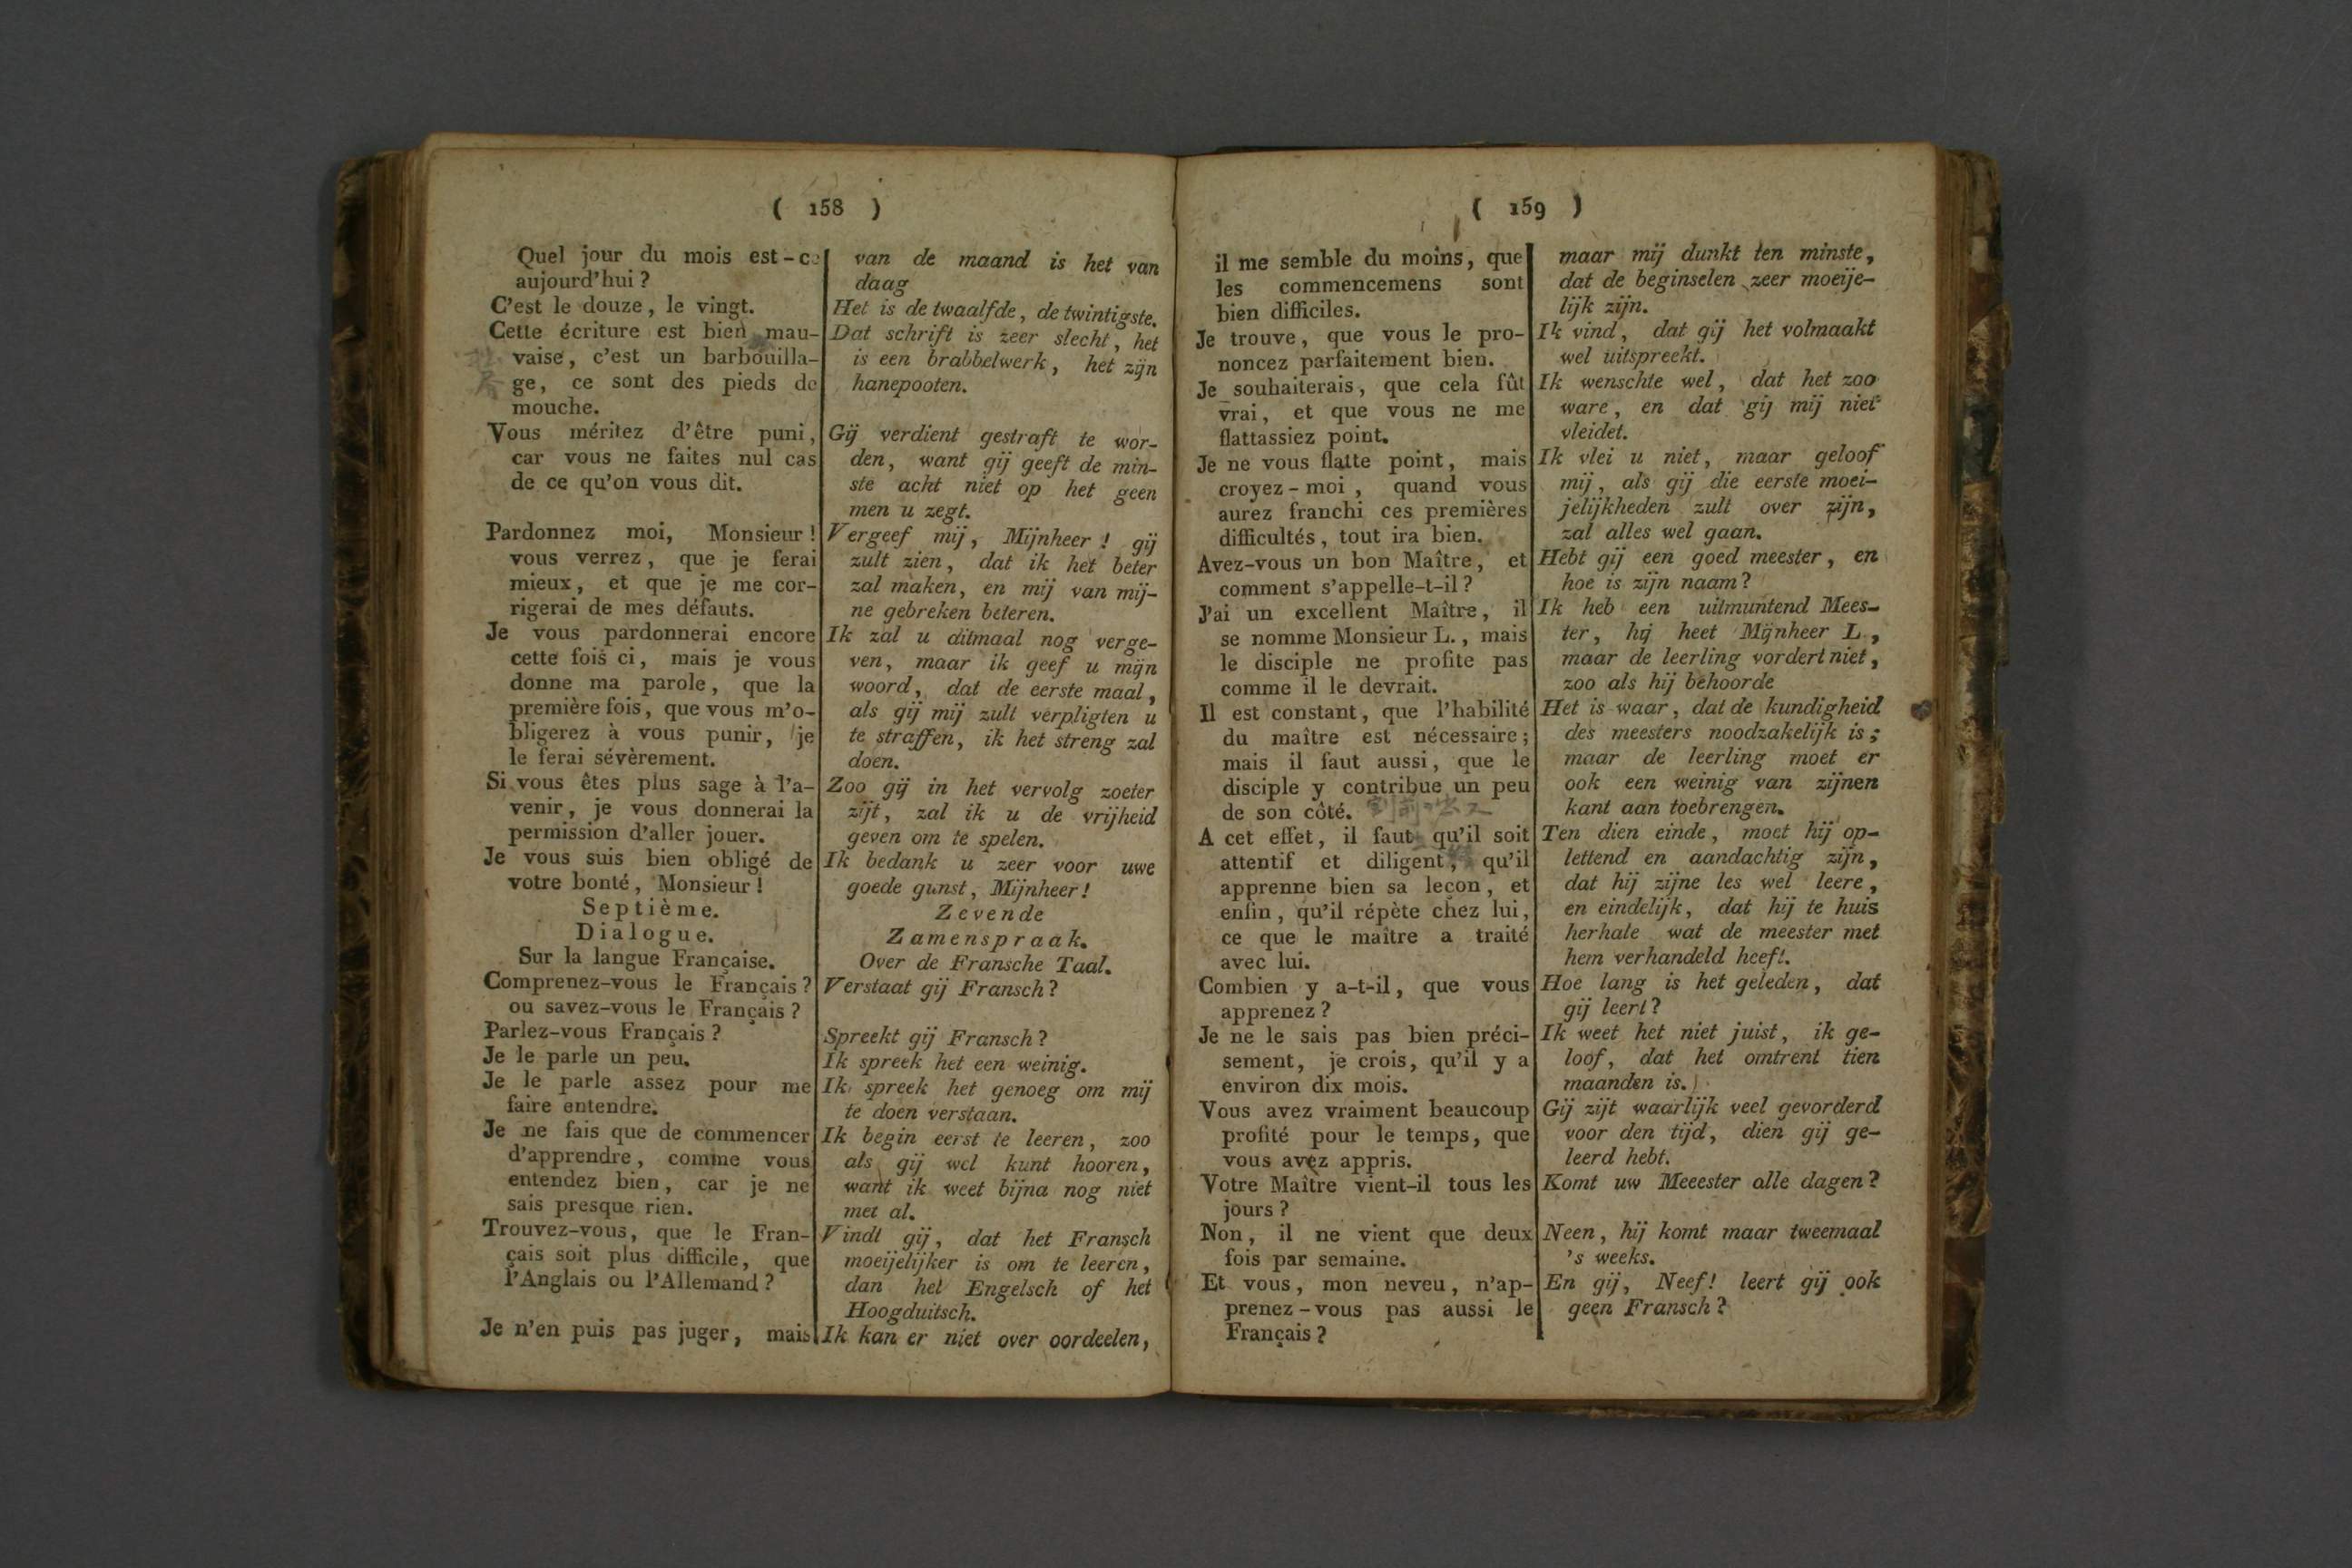 ( 158 )
Quel jour du mois est-ce
aujourd'hui ?
C'est le douze, le vingt.
Cette écriture est bien mau-
vaise, c'est un barbouilla-
ge, ce sont des pieds de
mouche.
Vous méritez d'être puni,
car vous ne faites nul cas
de ce qu'on vous dit.
Pardonnez moi, Monsieur !
vous verrez, que je ferai
mieux, et que je me cor-
rigerai de mes défauts.
Je vous pardonnerai encore
cette fois ci, mais je vous
donne ma parole, que la
première fois, que vous m'o-
bligerez à vous punir, je
le ferai sévèrement.
Si vous êtes plus sage à l'a-
venir, je vous donnerai la
permission d'aller jouer.
Je vous suis bien obligé de
votre bonté, Monsieur !
Septième.
Dialogue.
Sur la langue Française.
Comprenez-vous le Français ?
ou savez-vous le Français ?
Parlez-vous Français ?
Je le parle un peu.
Je le parle assez pour me
faire entendre.
Je ne fais que de commencer
d'apprendre, comme vous
entendez bien, car je ne
sais presque rien.
Trouvez-vous, que le Fran-
çais soit plus difficile, que
l'Anglais ou l'Allemand ?
Je n'en puis pas juger, mais
van de maand is het van
daag
Het is de twaalfde, de twintigste.
Dat schrift is zeer slecht, het
is een brabbelwerk, het zijn
hanepooten.
Gij verdient gestraft te wor-
den, want gij geeft de min-
ste acht niet op het geen
men u zegt.
Vergeef mij, Mijnheer ! gij
zult zien, dat ik het beter
zal maken, en mij van mij-
ne gebreken beteren.
Ik zal u ditmaal nog verge-
ven, maar ik geef u mijn
woord, dat de eerste maal,
als gij mij zult verpligten u
te straffen, ik het streng zal
doen.
Zoo gij in het vervolg zoeter
zijt, zal ik u de vrijheid
geven om te spelen.
Ik bedank u zeer voor uwe
goede gunst, Mijnheer !
Zevende
Zamenspraak.
Over de Fransche Taal.
Verstaat gij Fransch ?
Spreekt gij Fransch ?
Ik spreek het een weinig.
Ik spreek het genoeg om mij
te doen verstaan.
Ik begin eerst te leeren, zoo
als gij wel kunt hooren,
want ik weet bijna nog niet
met al.
Vindt gij, dat het Fransch
moeijelijker is om te leeren,
dan het Engelsch of het
Hoogduitsch.
Ik kan er niet over oordeelen,
( 159 )
il me semble du moins, que
les commencemens sont
bien difficiles.
Je trouve, que vous le pro-
noncez parfaitement bien.
Je souhaiterais, que cela fût
vrai, et que vous ne me
flattassiez point.
Je ne vous flatte point, mais
croyez-moi, quand vous
aurez franchi ces premières
difficultés, tout ira bien.
Avez-vous un bon Maître, et
comment s'appelle-t-il ?
J'ai un excellent Maître, il
se nomme Monsieur L., mais
le disciple ne profite pas
comme il le devrait.
Il est constant, que l'habilité
du maître est nécessaire ;
mais il faut aussi, que le
disciple y contribue un peu
de son côté.
A cet effet, il faut qu'il soit
attentif et diligent, qu'il
apprenne bien sa leçon, et
enfin, qu'il répète chez lui,
ce que le maître a traité
avec lui.
Combien y a-t-il, que vous
apprenez ?
Je ne le sais pas bien préci-
sement, je crois, qu'il y a
environ dix mois.
Vous avez vraiment beaucoup
profité pour le temps, que
vous avez appris.
Votre Maître vient-il tous les
jours ?
Non, il ne vient que deux
fois par semaine.
Et vous, mon neveu, n'ap-
prenez-vous pas aussi le
Français ?
maar mij dunkt ten minste,
dat de beginselen zeer moeije-
lijk zijn.
Ik vind, dat gij het volmaakt
wel uitspreekt.
Ik wenschte wel, dat het zoo
ware, en dat gij mij niet
vleidet.
Ik vlei u niet, maar geloof
mij, als gij die eerste moei-
jelijkheden zult over zijn,
zal alles wel gaan.
Hebt gij een goed meester, en
hoe is zijn naam ?
Ik heb een uitmuntend Mees-
ter, hij heet Mijnheer L.,
maar de leerling vordert niet,
zoo als hij behoorde
Het is waar, dat de kundigheid
des meesters noodzakelijk is ;
maar de leerling moet er
ook een weinig van zijnen
kant aan toebrengen.
Ten dien einde, moet hij op-
lettend en aandachtig zijn,
dat hij zijne les wel leere,
en eindelijk, dat hij te huis
herhale wat de meester met
hem verhandeld heeft.
Hoe lang is het geleden, dat
gij leert ?
Ik weet het niet juist, ik ge-
loof, dat het omtrent tien
maanden is.)
Gij zijt waarlijk veel gevorderd
voor den tijd, dien gij ge-
leerd hebt.
Komt uw Meeester alle dagen ?
Neen, hij komt maar tweemaal
's weeks.
En gij, Neef! leert gij ook
geen Fransch ?